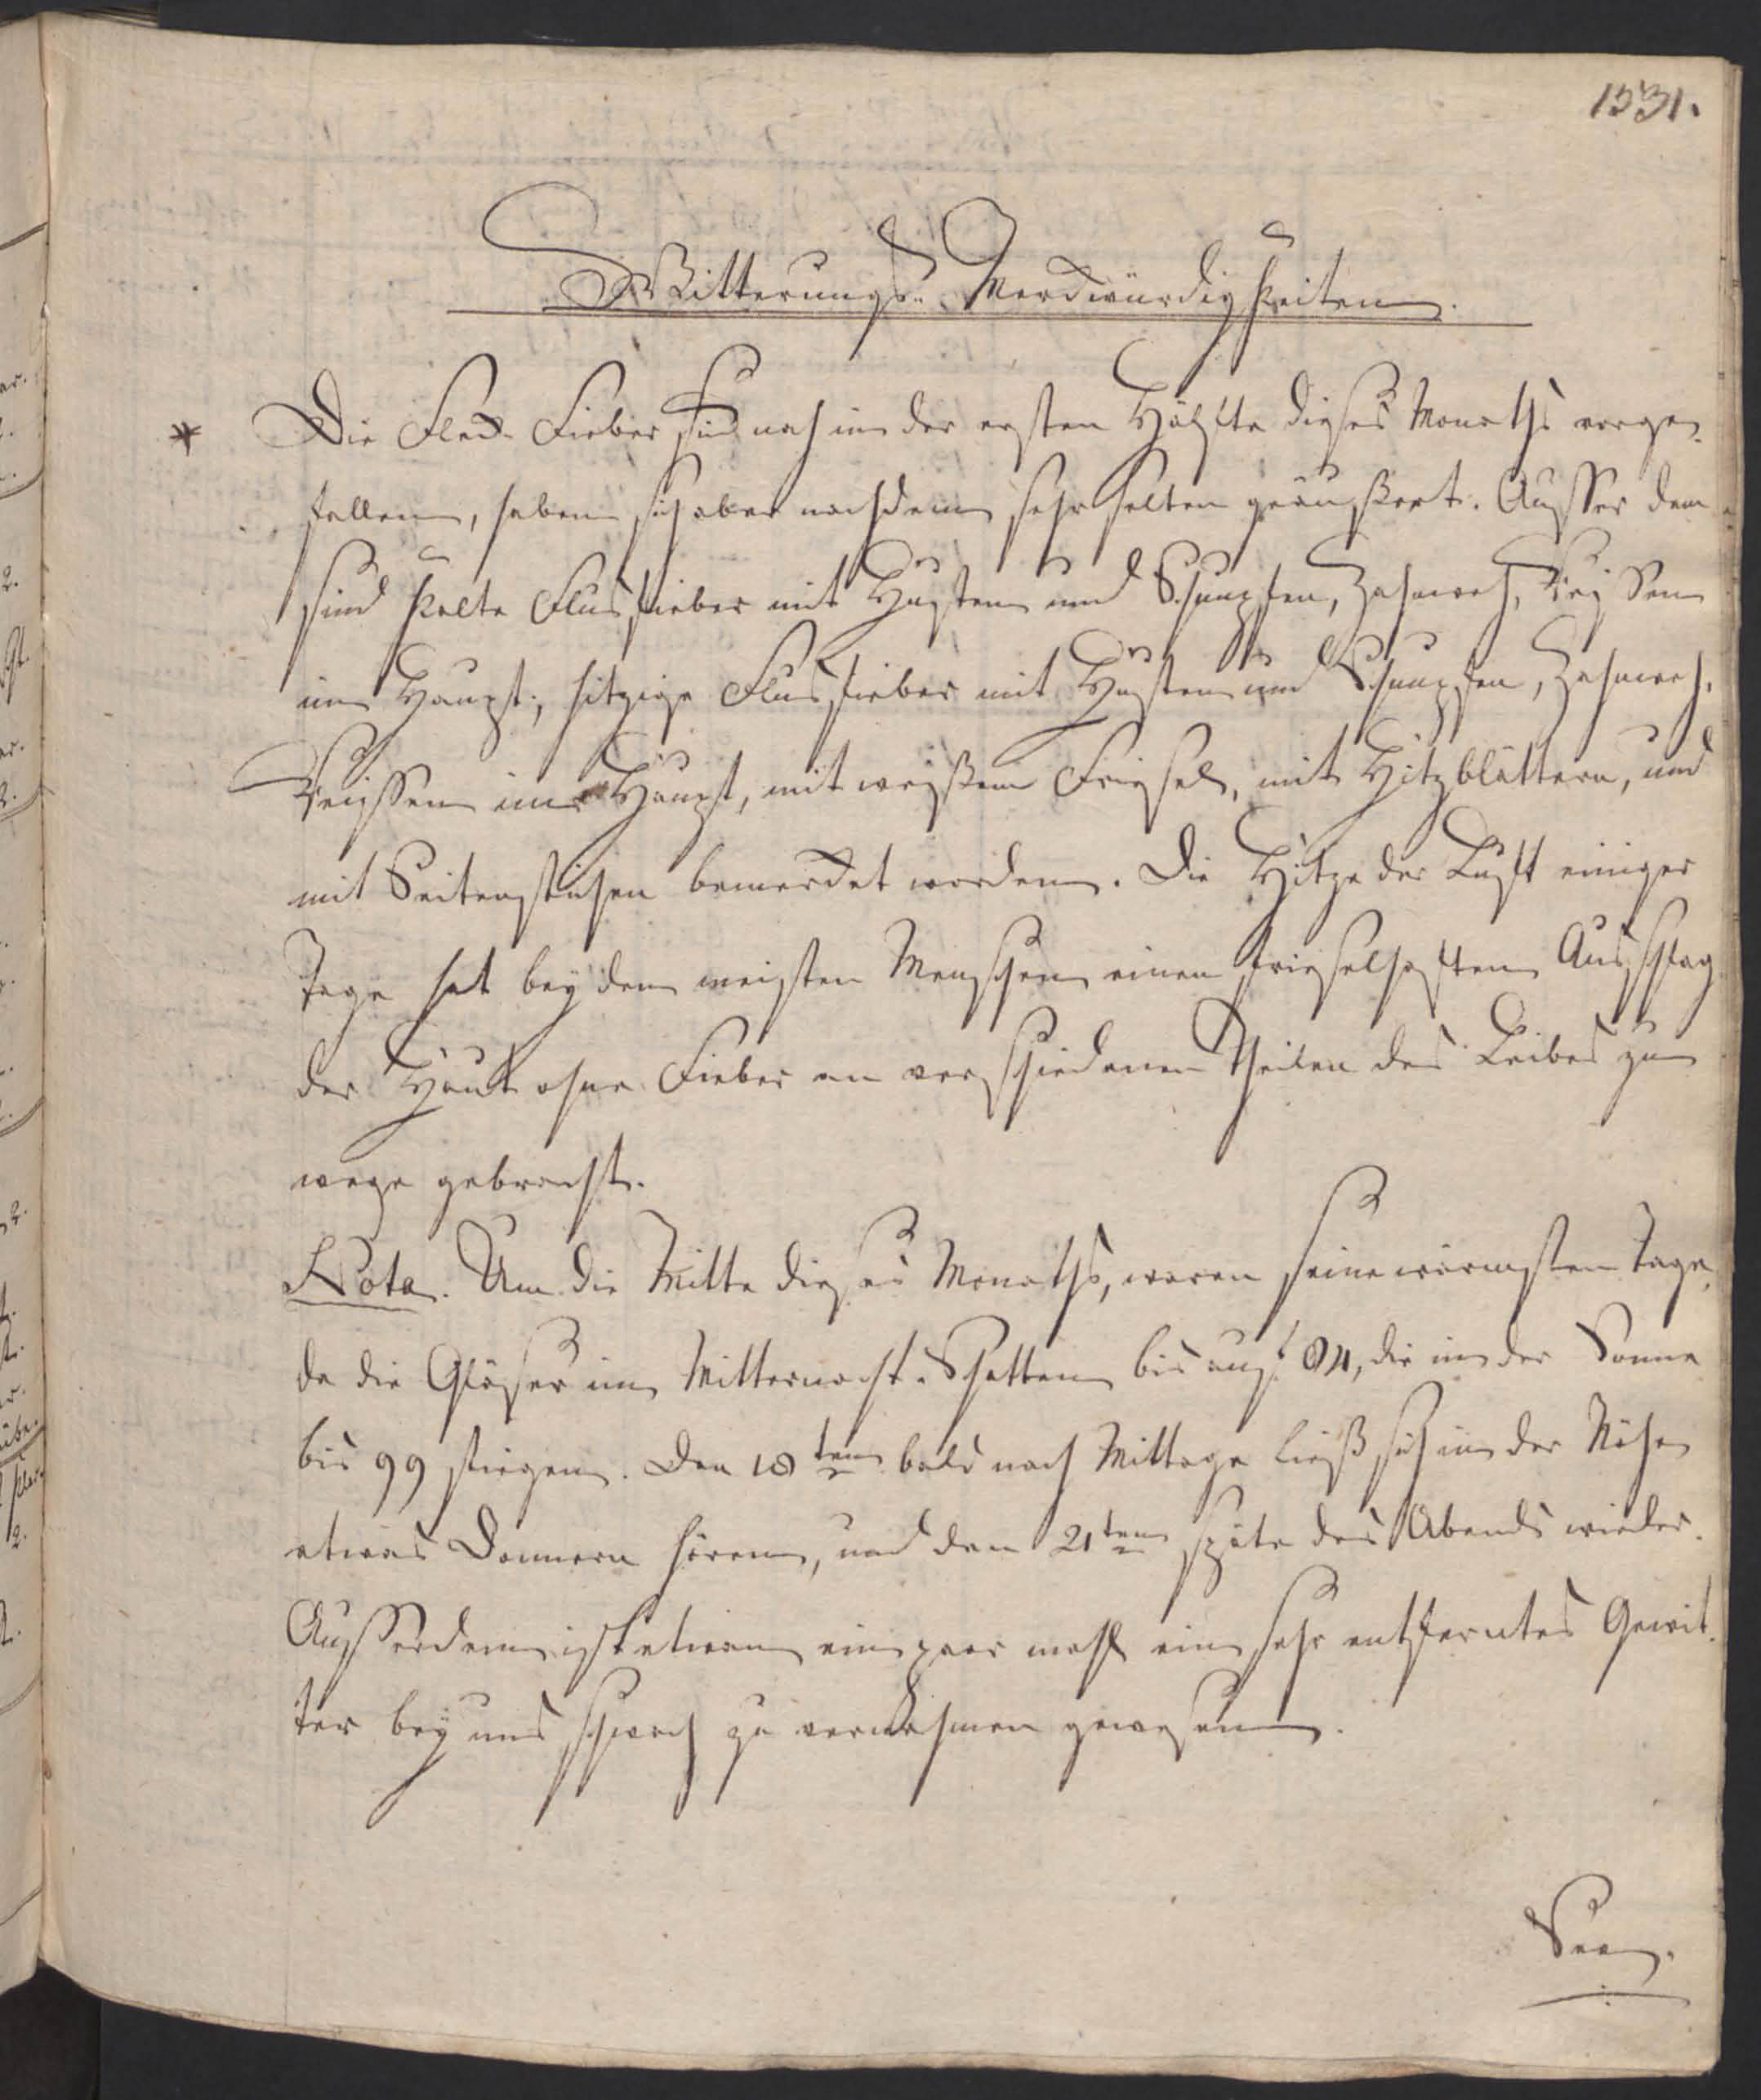 1531.
Witterungs-Merckwürdigkeiten.
* Die Fleck-Fieber sind noch in der ersten Hälfte dieses Monaths vorge-
fallen, haben sich aber nachdem sehr selten geäußert. Ausser dem
sind kalte Flusfieber mit Husten und Schnupfen, Zahnweh, Reissen
im Haupt; hitzige Flusfieber mit Husten und Schnupfen, Zahnweh,
Reissen im Haupt, mit weißem Friesel, mit Hitzblattern, und
mit Seitenstichen bemercket worden. Die Hitze der Luft einiger
Tage hat bey den meisten Menschen einen frieselhaften Ausschlag
der Haut ohne Fieber an verschiedenen Theilen des Leibes zu
wege gebracht.
Nota. Um die Mitte dieses Monaths, waren seine wärmsten Tage,
da die Gläser im Mitternacht-Schatten bis auf 84, die in der Sonne
bis 99 stiegen. Den 18ten bald nach Mittage ließ sich in der Nähe
etwas Donnern hören, und den 21ten späte des Abends wieder.
Ausserdem ist etwan ein paar mahl ein sehr entferntes Gewit-
ter bey uns schwach zu vernehmen gewesen.